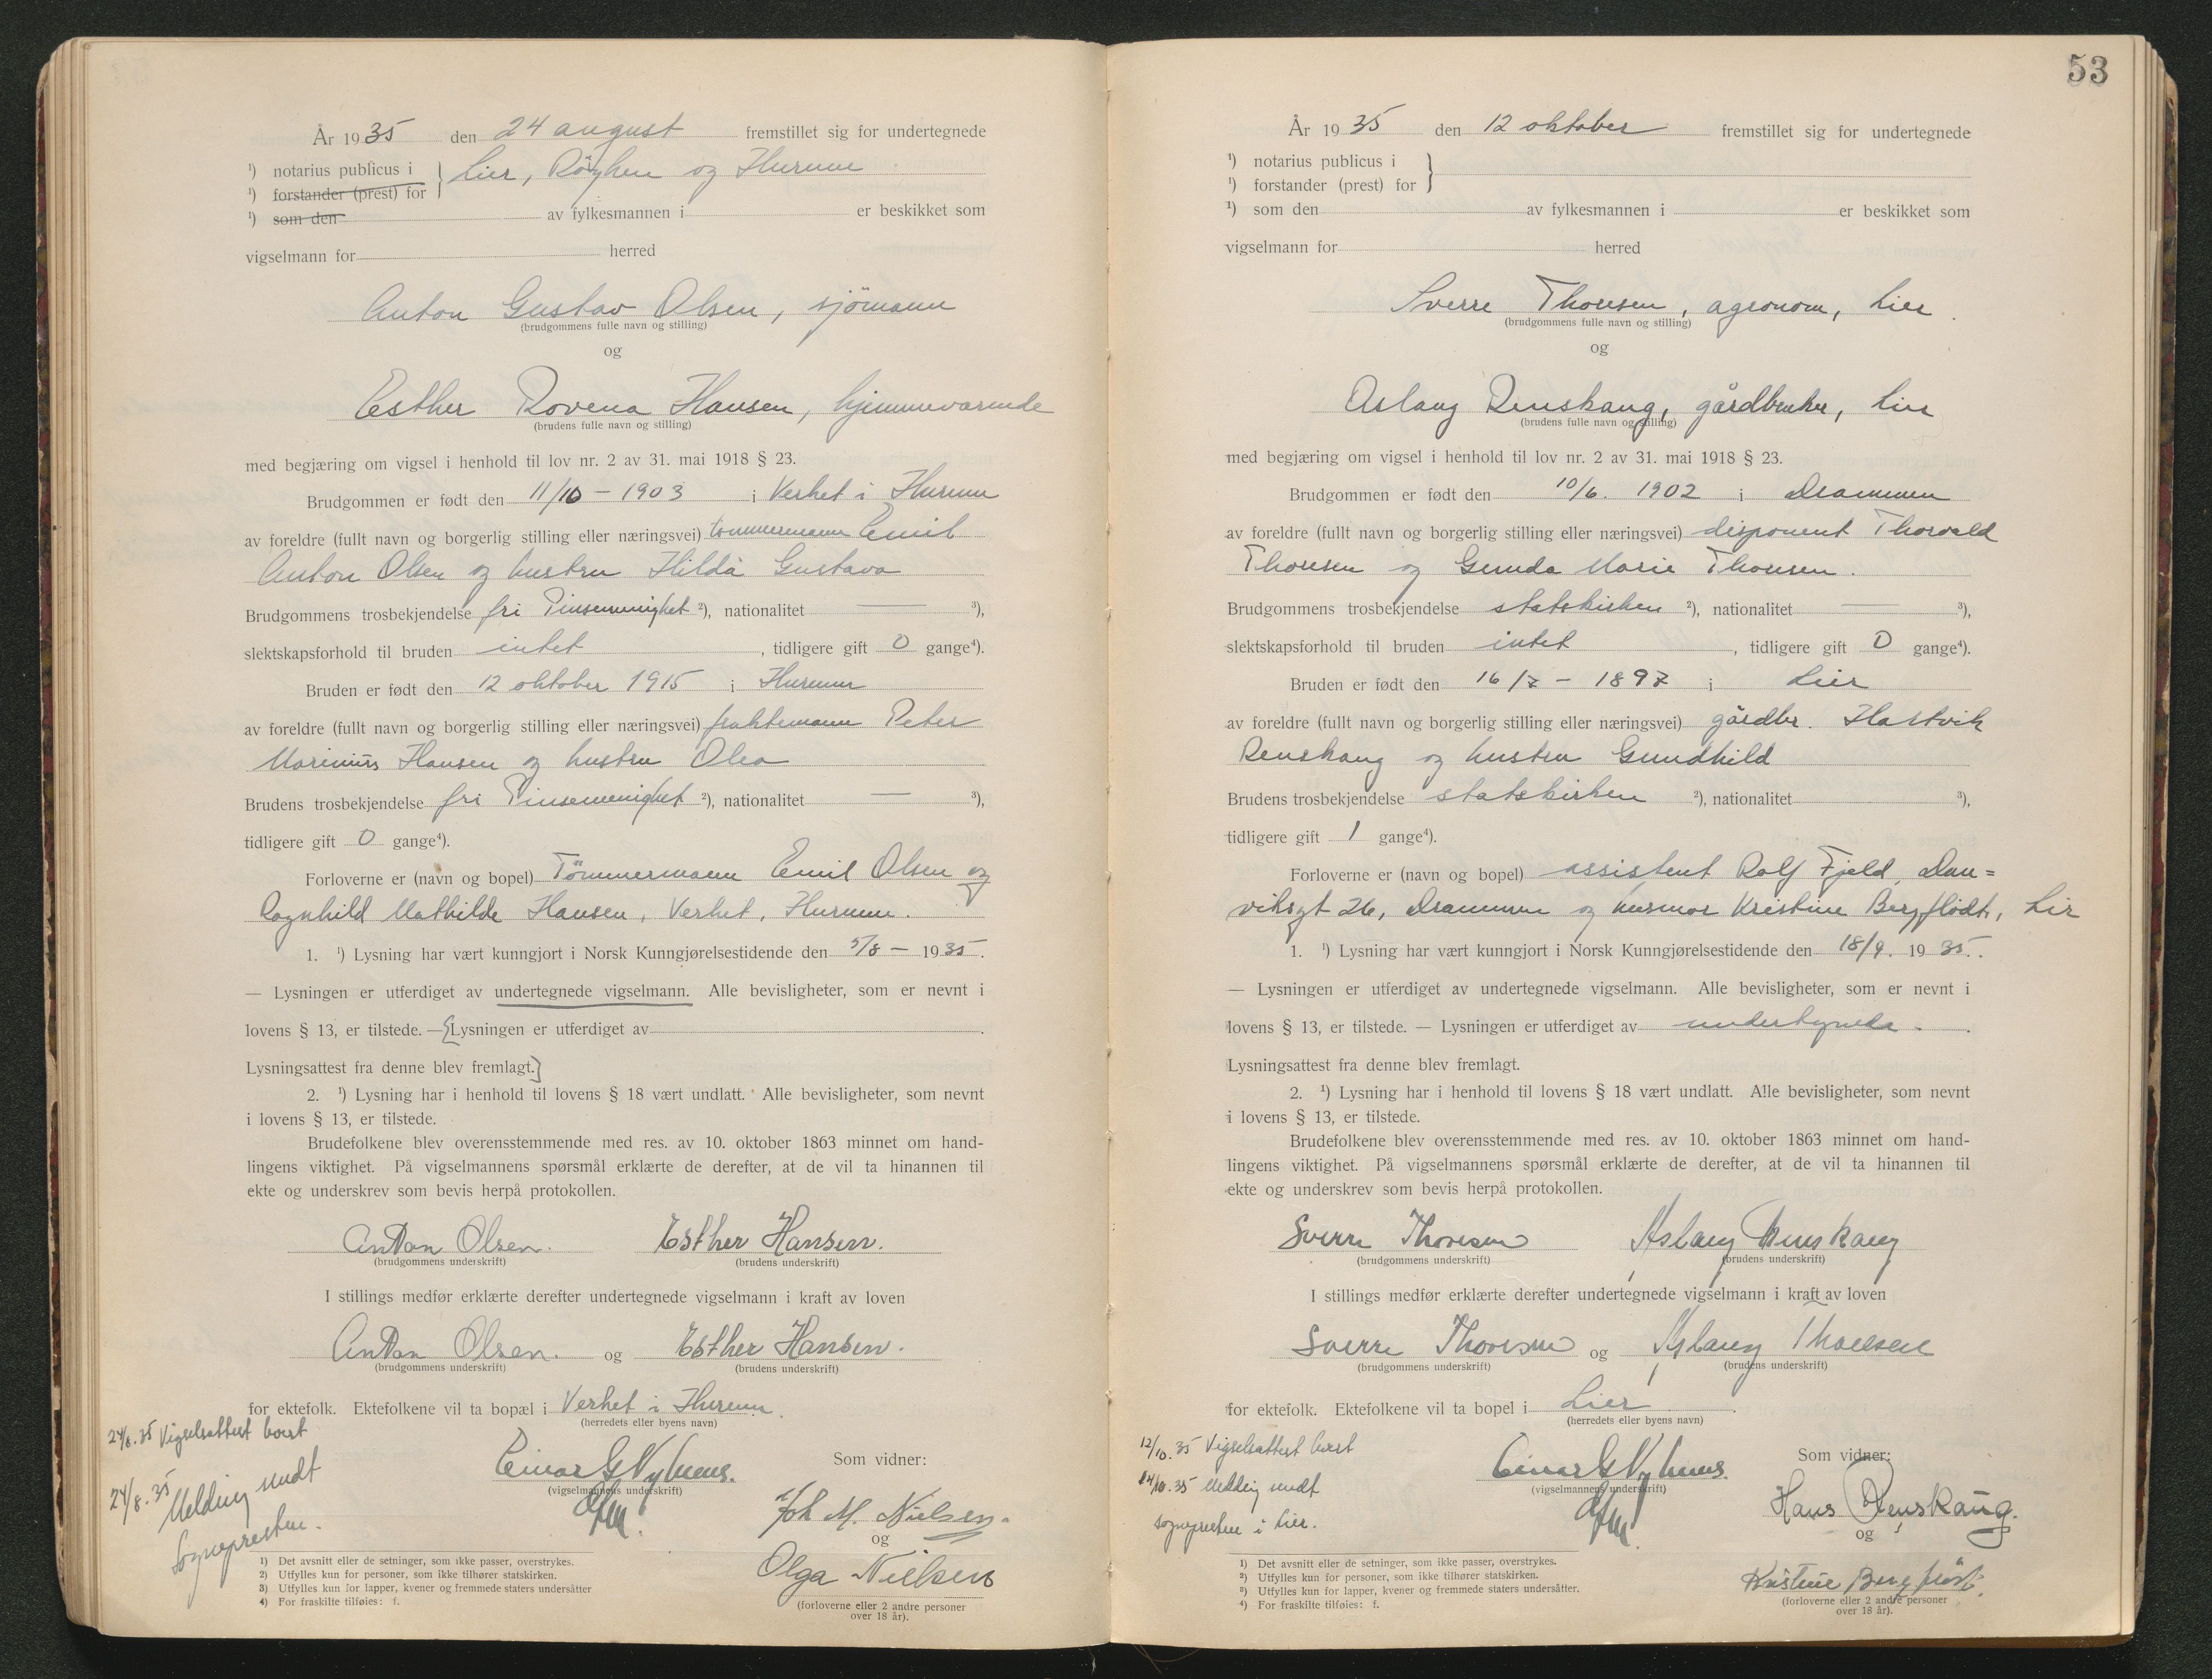 År 1935 den 24 august fremstillet sig for undertegnede
¹) notarius publicus i } Lier, Røyken og Hurum
¹) forstander (prest) for
¹) som den av fylkesmannen i er beskikket som
vigselmann for herred
Anton Gustav Olsen, sjömann
(brudgommens fulle navn og stilling)
og
Esther Rovena Hansen, hjemmeværende
(brudens fulle navn og stilling)
med begjæring om vigsel i henhold til lov nr. 2 av 31. mai 1918 § 23.
Brudgommen er født den 11/10 - 1903 i Verket i Hurum
av foreldre (fullt navn og borgerlig stilling eller næringsvei) tömmermann Emil
Anton Olsen og hustru Hilda Gustava
Brudgommens trosbekjendelse fri Pinsemenighet ²), nationalitet — ³),
slektskapsforhold til bruden intet, tidligere gift 0 gange⁴).
Bruden er født den 12 oktober 1915 i Hurum
av foreldre (fullt navn og borgerlig stilling eller næringsvei) fraktemann Peter
Marinius Hansen og hustru Olea
Brudens trosbekjendelse fri Pinsemenighet ²), nationalitet — ³),
tidligere gift 0 gange⁴).
Forloverne er (navn og bopel) Tömmermann Emil Olsen og
Ragnhild Mathilde Hansen, Verket, Hurum.
1. ¹) Lysning har vært kunngjort i Norsk Kunngjørelsestidende den 5/8 — 1935.
— Lysningen er utferdiget av undertegnede vigselmann. Alle bevisligheter, som er nevnt i
lovens § 13, er tilstede. — [Lysningen er utferdiget av .
Lysningsattest fra denne blev fremlagt.]
2. ¹) Lysning har i henhold til lovens § 18 vært undlatt. Alle bevisligheter, som nevnt
i lovens § 13, er tilstede.
Brudefolkene blev overensstemmende med res. av 10. oktober 1863 minnet om hand-
lingens viktighet. På vigselmannens spørsmål erklærte de derefter, at de vil ta hinannen til
ekte og underskrev som bevis herpå protokollen.
Anton Olsen. Esther Hansen.
(brudgommens underskrift) (brudens underskrift)
I stillings medfør erklærte derefter undertegnede vigselmann i kraft av loven
Anton Olsen. og Esther Hansen.
(brudgommens underskrift) (brudens underskrift)
for ektefolk. Ektefolkene vil ta bopæl i Verket i Hurum.
(herredets eller byens navn)
24/8.35 Vigselsattest
24/8.35 Melding sendt
Sognepresten.
Einar G. Nyhuus.
(vigselmannens underskrift)
Som vidner:
Joh M. Nielsen.
og
Olga Nielsen
(forloverne eller 2 andre personer
over 18 år).
1) Det avsnitt eller de setninger, som ikke passer, overstrykes.
2) Utfylles kun for personer, som ikke tilhører statskirken.
3) Utfylles kun for lapper, kvener og fremmede staters undersåtter
4) For fraskilte tilføies: f.
53
År 1935 den 12 oktober fremstillet sig for undertegnede
¹) notarius publicus i }
¹) forstander (prest) for
¹) som den av fylkesmannen i er beskikket som
vigselmann for herred
Sverre Thoresen, agronom, Lier.
(brudgommens fulle navn og stilling)
og
Aslaug Renskaug, gårdbruker, Lier
(brudens fulle navn og stilling)
med begjæring om vigsel i henhold til lov nr. 2 av 31. mai 1918 § 23.
Brudgommen er født den 10/6. 1902 i Drammen
av foreldre (fullt navn og borgerlig stilling eller næringsvei) disponent Thorvald
Thoresen og Gunda Marie Thoresen.
Brudgommens trosbekjendelse statskirken ²), nationalitet — ³),
slektskapsforhold til bruden intet, tidligere gift 0 gange⁴).
Bruden er født den 16/7 - 1897 i Lier
av foreldre (fullt navn og borgerlig stilling eller næringsvei) gårdbr. Hartvik
Renskaug og hustru Gundhild
Brudens trosbekjendelse statskirken ²), nationalitet ³),
tidligere gift 1 gange⁴).
Forloverne er (navn og bopel) assistent Rolf Fjeld, Dan=
viksgt 26, Drammen og husmor Kristine Bergflødt, Lier
1. ¹) Lysning har vært kunngjort i Norsk Kunngjørelsestidende den 18/9. 1935.
— Lysningen er utferdiget av undertegnede vigselmann. Alle bevisligheter, som er nevnt i
lovens § 13, er tilstede. — Lysningen er utferdiget av undertegnede.
Lysningsattest fra denne blev fremlagt.
2. ¹) Lysning har i henhold til lovens § 18 vært undlatt. Alle bevisligheter, som nevnt
i lovens § 13, er tilstede.
Brudefolkene blev overensstemmende med res. av 10. oktober 1863 minnet om hand-
lingens viktighet. På vigselmannens spørsmål erklærte de derefter, at de vil ta hinannen til
ekte og underskrev som bevis herpå protokollen.
Sverre Thoresen Aslaug Renskaug
(brudgommens underskrift) (brudens underskrift)
I stillings medfør erklærte derefter undertegnede vigselmann i kraft av loven
Sverre Thoresen og Aslaug Thoresen
(brudgommens underskrift) (brudens underskrift)
for ektefolk. Ektefolkene vil ta bopel i Lier.
(herredets eller byens navn)
12/10.35 Vigselsattest
14/10.35 Melding sendt
sognepresten i Lier.
Einar G. Nyhuus.
(vigselmannens underskrift)
Som vidner:
Hans Renskaug.
og
Kristine Bergflødt.
(forloverne eller 2 andre personer
over 18 år).
1) Det avsnitt eller de setninger, som ikke passer, overstrykes.
2) Utfylles kun for personer, som ikke tilhører statskirken.
3) Utfylles kun for lapper, kvener og fremmede staters undersåtter.
4) For fraskilte tilføies: f.